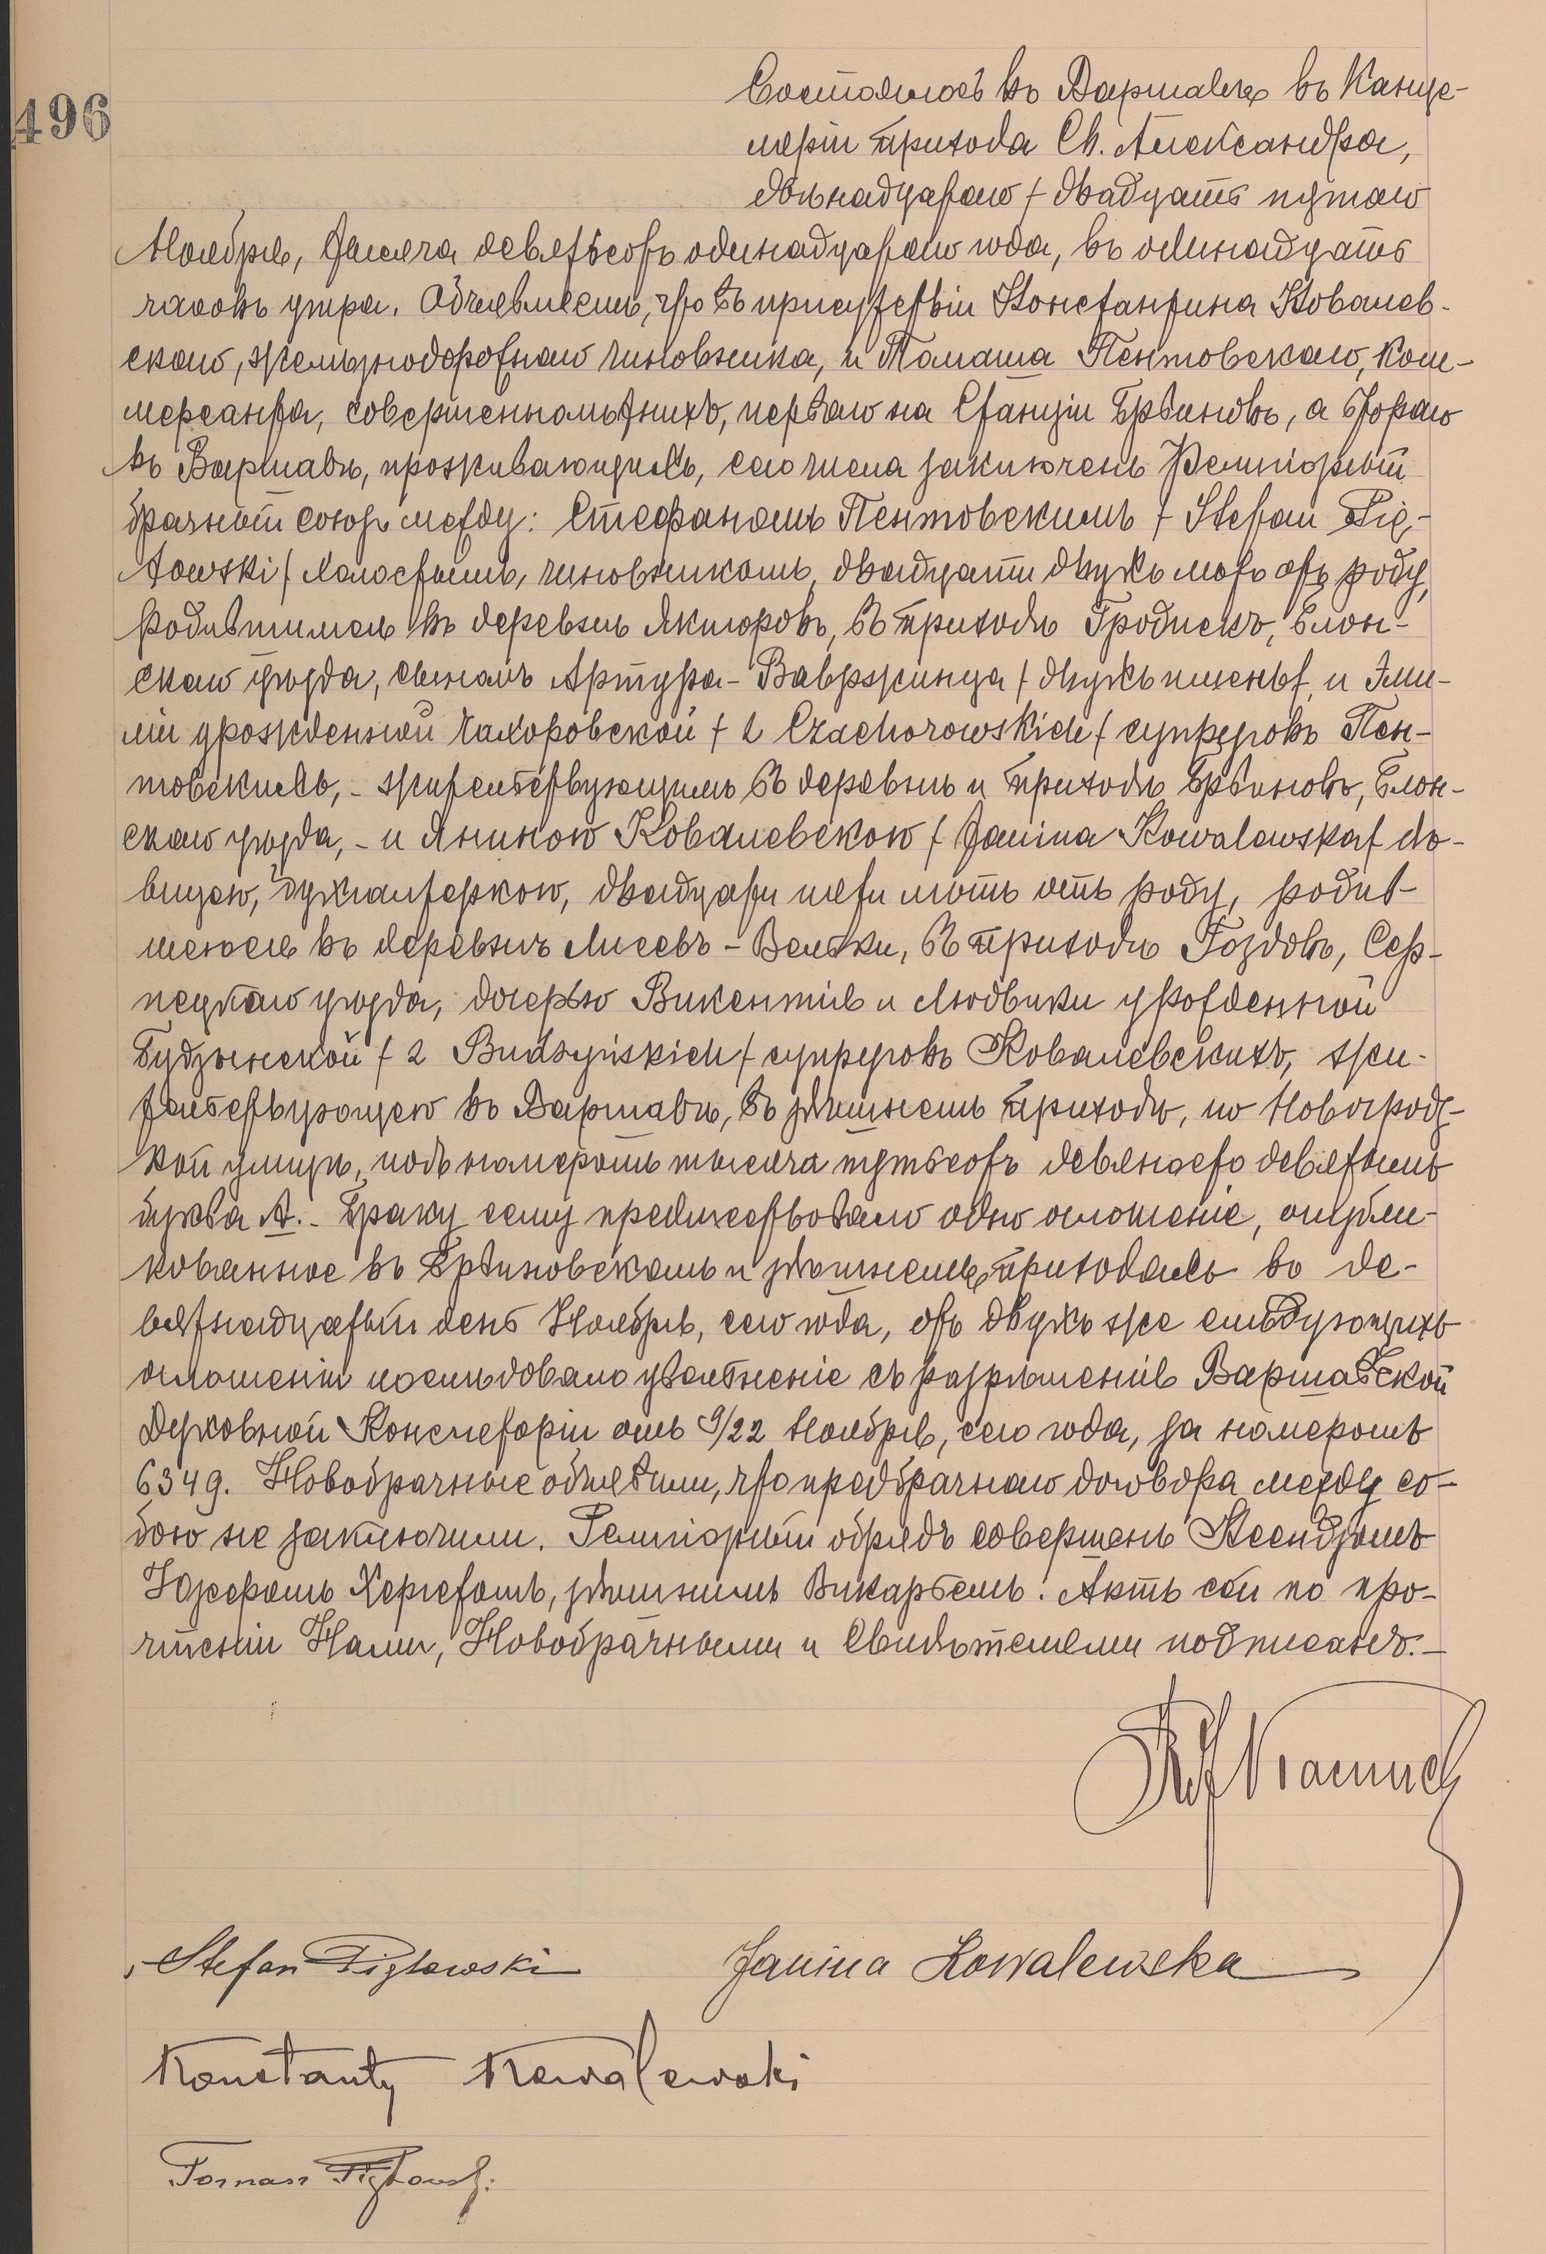 496
Состоялось въ Варшавѣ въ Канце-
ляріи прихода Св. Александра,
двѣнадцатаго / двадцать пятаго
Ноября, тысяча девятьсотъ одинадцатаго года, въ одинадцать
часовъ утра. Объявляемъ, что въ присутствіи Константина Ковалев-
скаго, желѣзнодорожнаго чиновника, и Томаша Пентовскаго, ком-
мерсанта, совершеннолѣтнихъ, перваго на Станціи Брвиновъ, а втораго
въ Варшавѣ, проживающихъ, сего числа заключенъ Религіозный
брачный союзъ между: Стефаномъ Пентовскимъ / Stefan Pię-
towski / холостымъ, чиновникомъ, двадцати двухъ лѣтъ отъ роду,
родившимся въ деревнѣ Якторовъ, въ приходѣ Гродискъ, Блон-
скаго уѣзда, сыномъ Артура-Вавржинца / двухъ именъ / и Эми-
ліи урожденной Чахоровской / z Czachorowskich / супруговъ Пен-
товскихъ, - жительствующимъ въ деревнѣ и приходѣ Брвиновъ, Блон-
скаго уѣзда, - и Яниною Ковалевскою / Janina Kowalewska / дѣ-
вицею, бухгалтеркою, двадцати пяти лѣтъ отъ роду, родив-
шеюся въ деревнѣ Лисевъ-Вельки, въ приходѣ Гоздовъ, Сер-
пецкаго уѣзда, дочерью Викентія и Людвики урожденной
Будзынской / z Budzyńskich / супруговъ Ковалевскихъ, жи-
тельствующею въ Варшавѣ, въ здѣшнемъ приходѣ, по Новогродз-
кой улицѣ, подъ номеромъ тысяча пятьсотъ девяносто девятымъ
буква А. - Браку сему предшествовало одно оглашеніе, опубли-
кованное въ Брвиновскомъ и здѣшнемъ приходахъ въ де-
вятнадцатый день Ноября, сего года, отъ двухъ же слѣдующихъ
оглашеній послѣдовало увольненіе съ разрѣшенія Варшавской
Духовной Консисторіи отъ 9/22 Ноября, сего года, за номеромъ
6349. Новобрачные объявили, что предбрачнаго договора между со-
бою не заключили. Религіозный обрядъ совершенъ Ксендзомъ
Юзефомъ, здѣшнимъ Викаріемъ. Актъ сей по про-
чтеніи Нами, Новобрачными и Свидѣтелями подписанъ. -
Stefan Piętowski Janina Kowalewska
Konstanty Kowalewski
Tomasz Piętowski